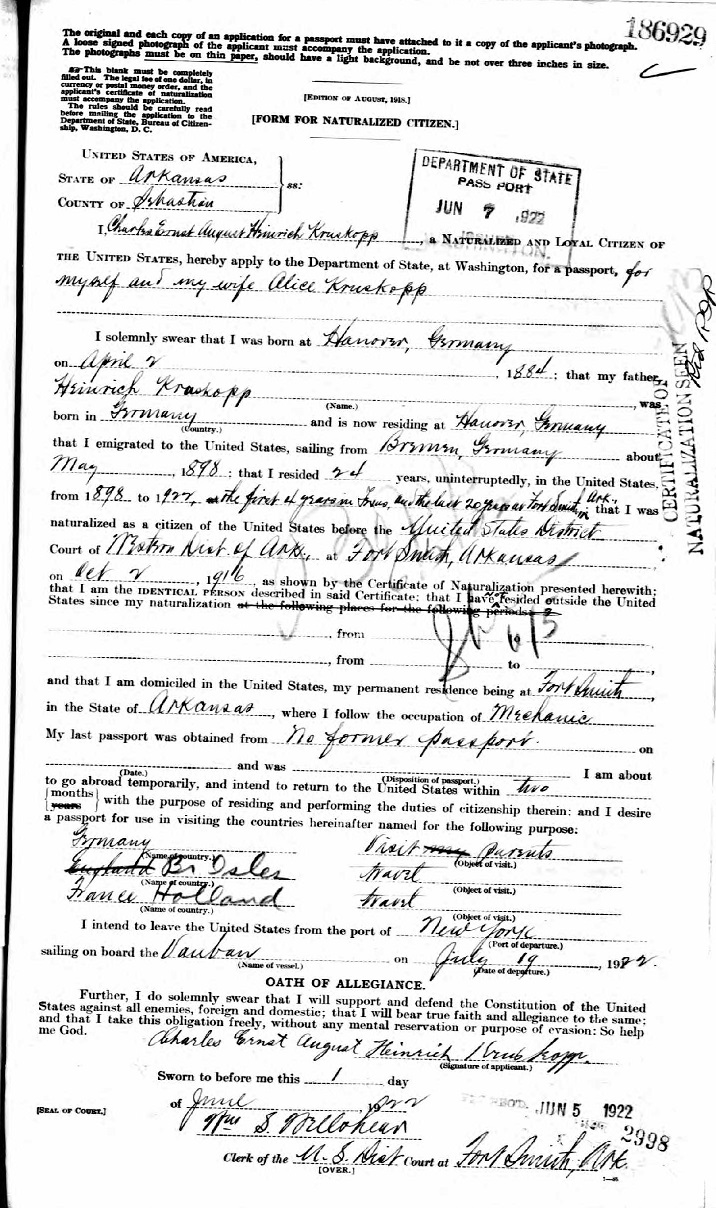 186929
The original and each copy of an application for a passport must have attached to it a copy of the applicant's photograph.
A loose signed photograph of the applicant must accompany the application.
The photographs must be on thin paper, should have a light background, and be not over three inches in size.
This blank must be completely
filled out. The legal fee of one dollar, in
currency or postal money order, and the
applicant's certificate of naturalization
must accompany the application.
The rules should be carefully read
before mailing the application to the
Department of State, Bureau of Citizen-
ship, Washington, D. C.
[EDITION OF AUGUST, 1918.]
[FORM FOR NATURALIZED CITIZEN.]
UNITED STATES OF AMERICA,
STATE OF Arkansas
COUNTY OF Sebastian
ss:
DEPARTMENT OF STATE
PASS PORT
JUN 7 1922
WASHINGTON.
I, Charles Ernst August Heinrich Kruskopp, a NATURALIZED AND LOYAL CITIZEN OF
THE UNITED STATES, hereby apply to the Department of State, at Washington, for a passport, for
myself and my wife Alice Kruskopp
I solemnly swear that I was born at Hanover, Germany
on April 2, 1884; that my father,
Heinrich Kruskopp, was
(Name.)
born in Germany and is now residing at Hanover, Germany
(Country.)
that I emigrated to the United States, sailing from Bremen, Germany about
May, 1898; that I resided 24 years, uninterruptedly, in the United States,
from 1898 to 1922, the first 4 years in Texas, and the last 20 years at Fort Smith, Ark., that I was
naturalized as a citizen of the United States before the United States District
Court of Western Dist of Ark., at Fort Smith, Arkansas
on Oct 2, 1916, as shown by the Certificate of Naturalization presented herewith;
that I am the IDENTICAL PERSON described in said Certificate; that I have not resided outside the United
States since my naturalization at the following places for the following periods:
, from to ,
, from to ,
and that I am domiciled in the United States, my permanent residence being at Fort Smith,
in the State of Arkansas, where I follow the occupation of Mechanic
My last passport was obtained from No former passport. on
and was I am about
(Date.) (Disposition of passport.)
to go abroad temporarily, and intend to return to the United States within two
{months
years} with the purpose of residing and performing the duties of citizenship therein; and I desire
a passport for use in visiting the countries hereinafter named for the following purpose:
Germany Visit my parents
(Name of country.) (Object of visit.)
England Br Isles travel
(Name of country.) (Object of visit.)
France Holland travel
(Name of country.) (Object of visit.)
I intend to leave the United States from the port of New York
(Port of departure.)
sailing on board the Vauban on July 19, 1922.
(Name of vessel.) (Date of departure.)
OATH OF ALLEGIANCE.
Further, I do solemnly swear that I will support and defend the Constitution of the United
States against all enemies, foreign and domestic; that I will bear true faith and allegiance to the same;
and that I take this obligation freely, without any mental reservation or purpose of evasion: So help
me God.
Charles Ernst August Heinrich Kruskopp.
(Signature of applicant.)
Sworn to before me this 1 day
of June 1922
[SEAL OF COURT.]
Wm S. Wellshear
JUN 5 1922
2998
Clerk of the U. S. Dist Court at Fort Smith, Ark.
[OVER.]
CERTIFICATE OF
NATURALIZATION SEEN